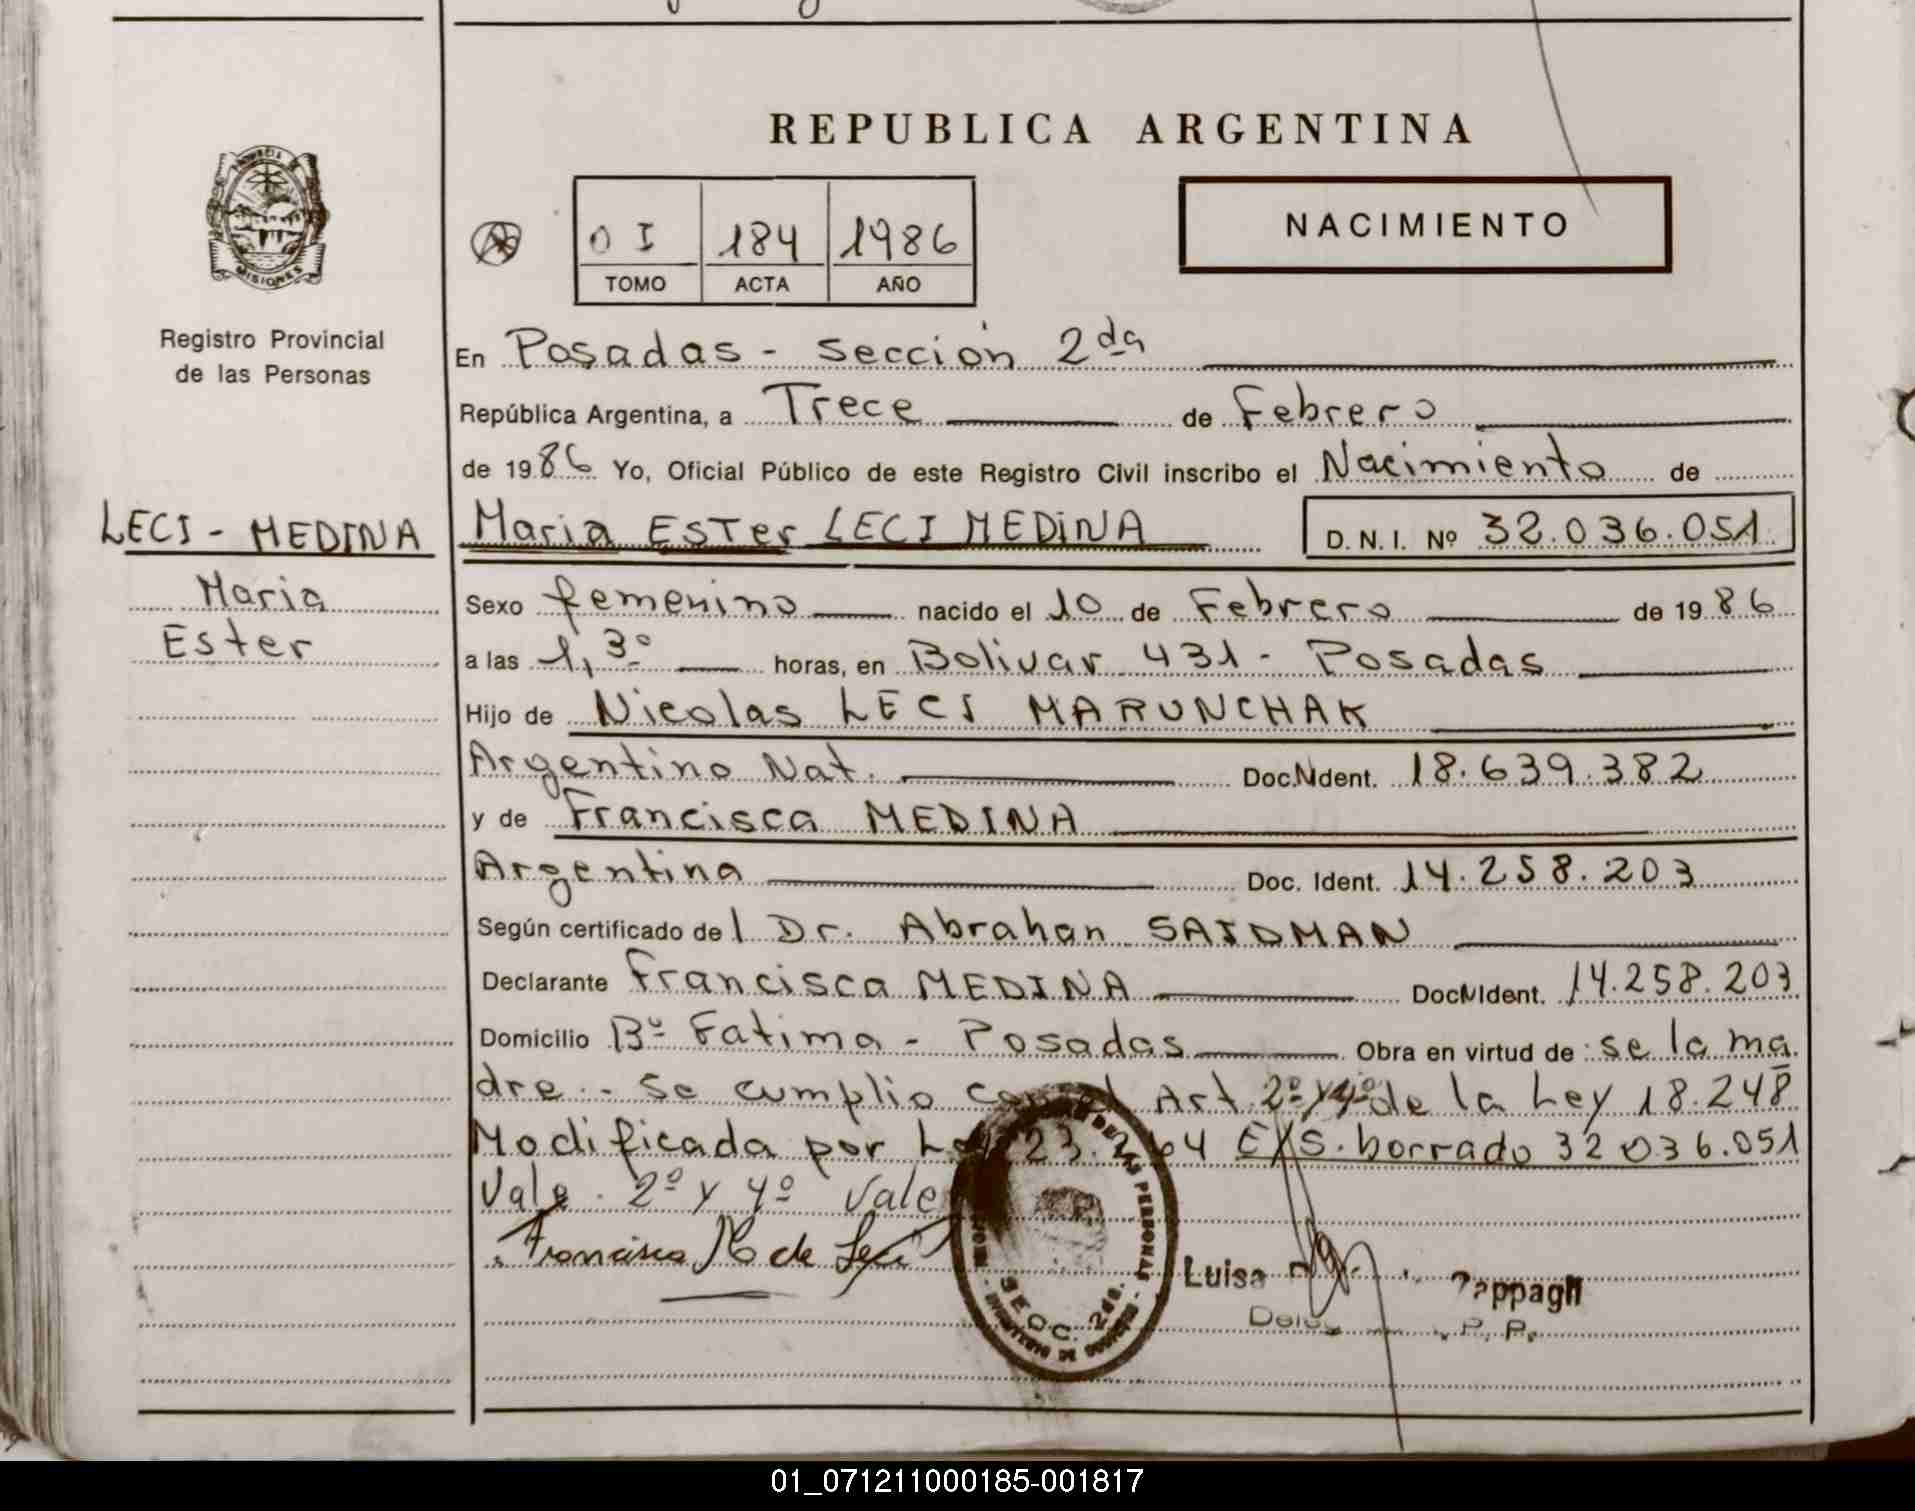 REPUBLICA ARGENTINA
PROVINCIA DE
MISIONES
Registro Provincial
de las Personas
0 I 184 1986
TOMO ACTA AÑO
NACIMIENTO
En Posadas - sección 2da
República Argentina, a Trece de Febrero
de 1986 Yo, Oficial Público de este Registro Civil inscribo el Nacimiento de
LECI - MEDINA
Maria
Ester
Maria ESTer LECI MEDINA D. N. I. Nº 32.036.051
Sexo femenino nacido el 10 de Febrero de 1986
a las 1,3º horas, en Bolivar 431 - Posadas
Hijo de Nicolas LECI MARUNCHAK
Argentino Nat. Doc.NIdent. 18.639.382
y de Francisca MEDINA
Argentina Doc. Ident. 14.258.203
Según certificado del Dr. Abrahan SAIDMAN
Declarante Francisca MEDINA Doc.NIdent. 14.258.203
Domicilio Bº Fatima - Posadas Obra en virtud de se la ma
dre - Se cumplio Art 2º y 4º de la Ley 18.248
Modificada por 23. 64 E/S. borrado 32 036.051
Vale. 2º y 4º Vale
Francisca M de Leci
DE LAS PERSONAS
SECC. 2da.
Luisa
P. P.
01_071211000185-001817